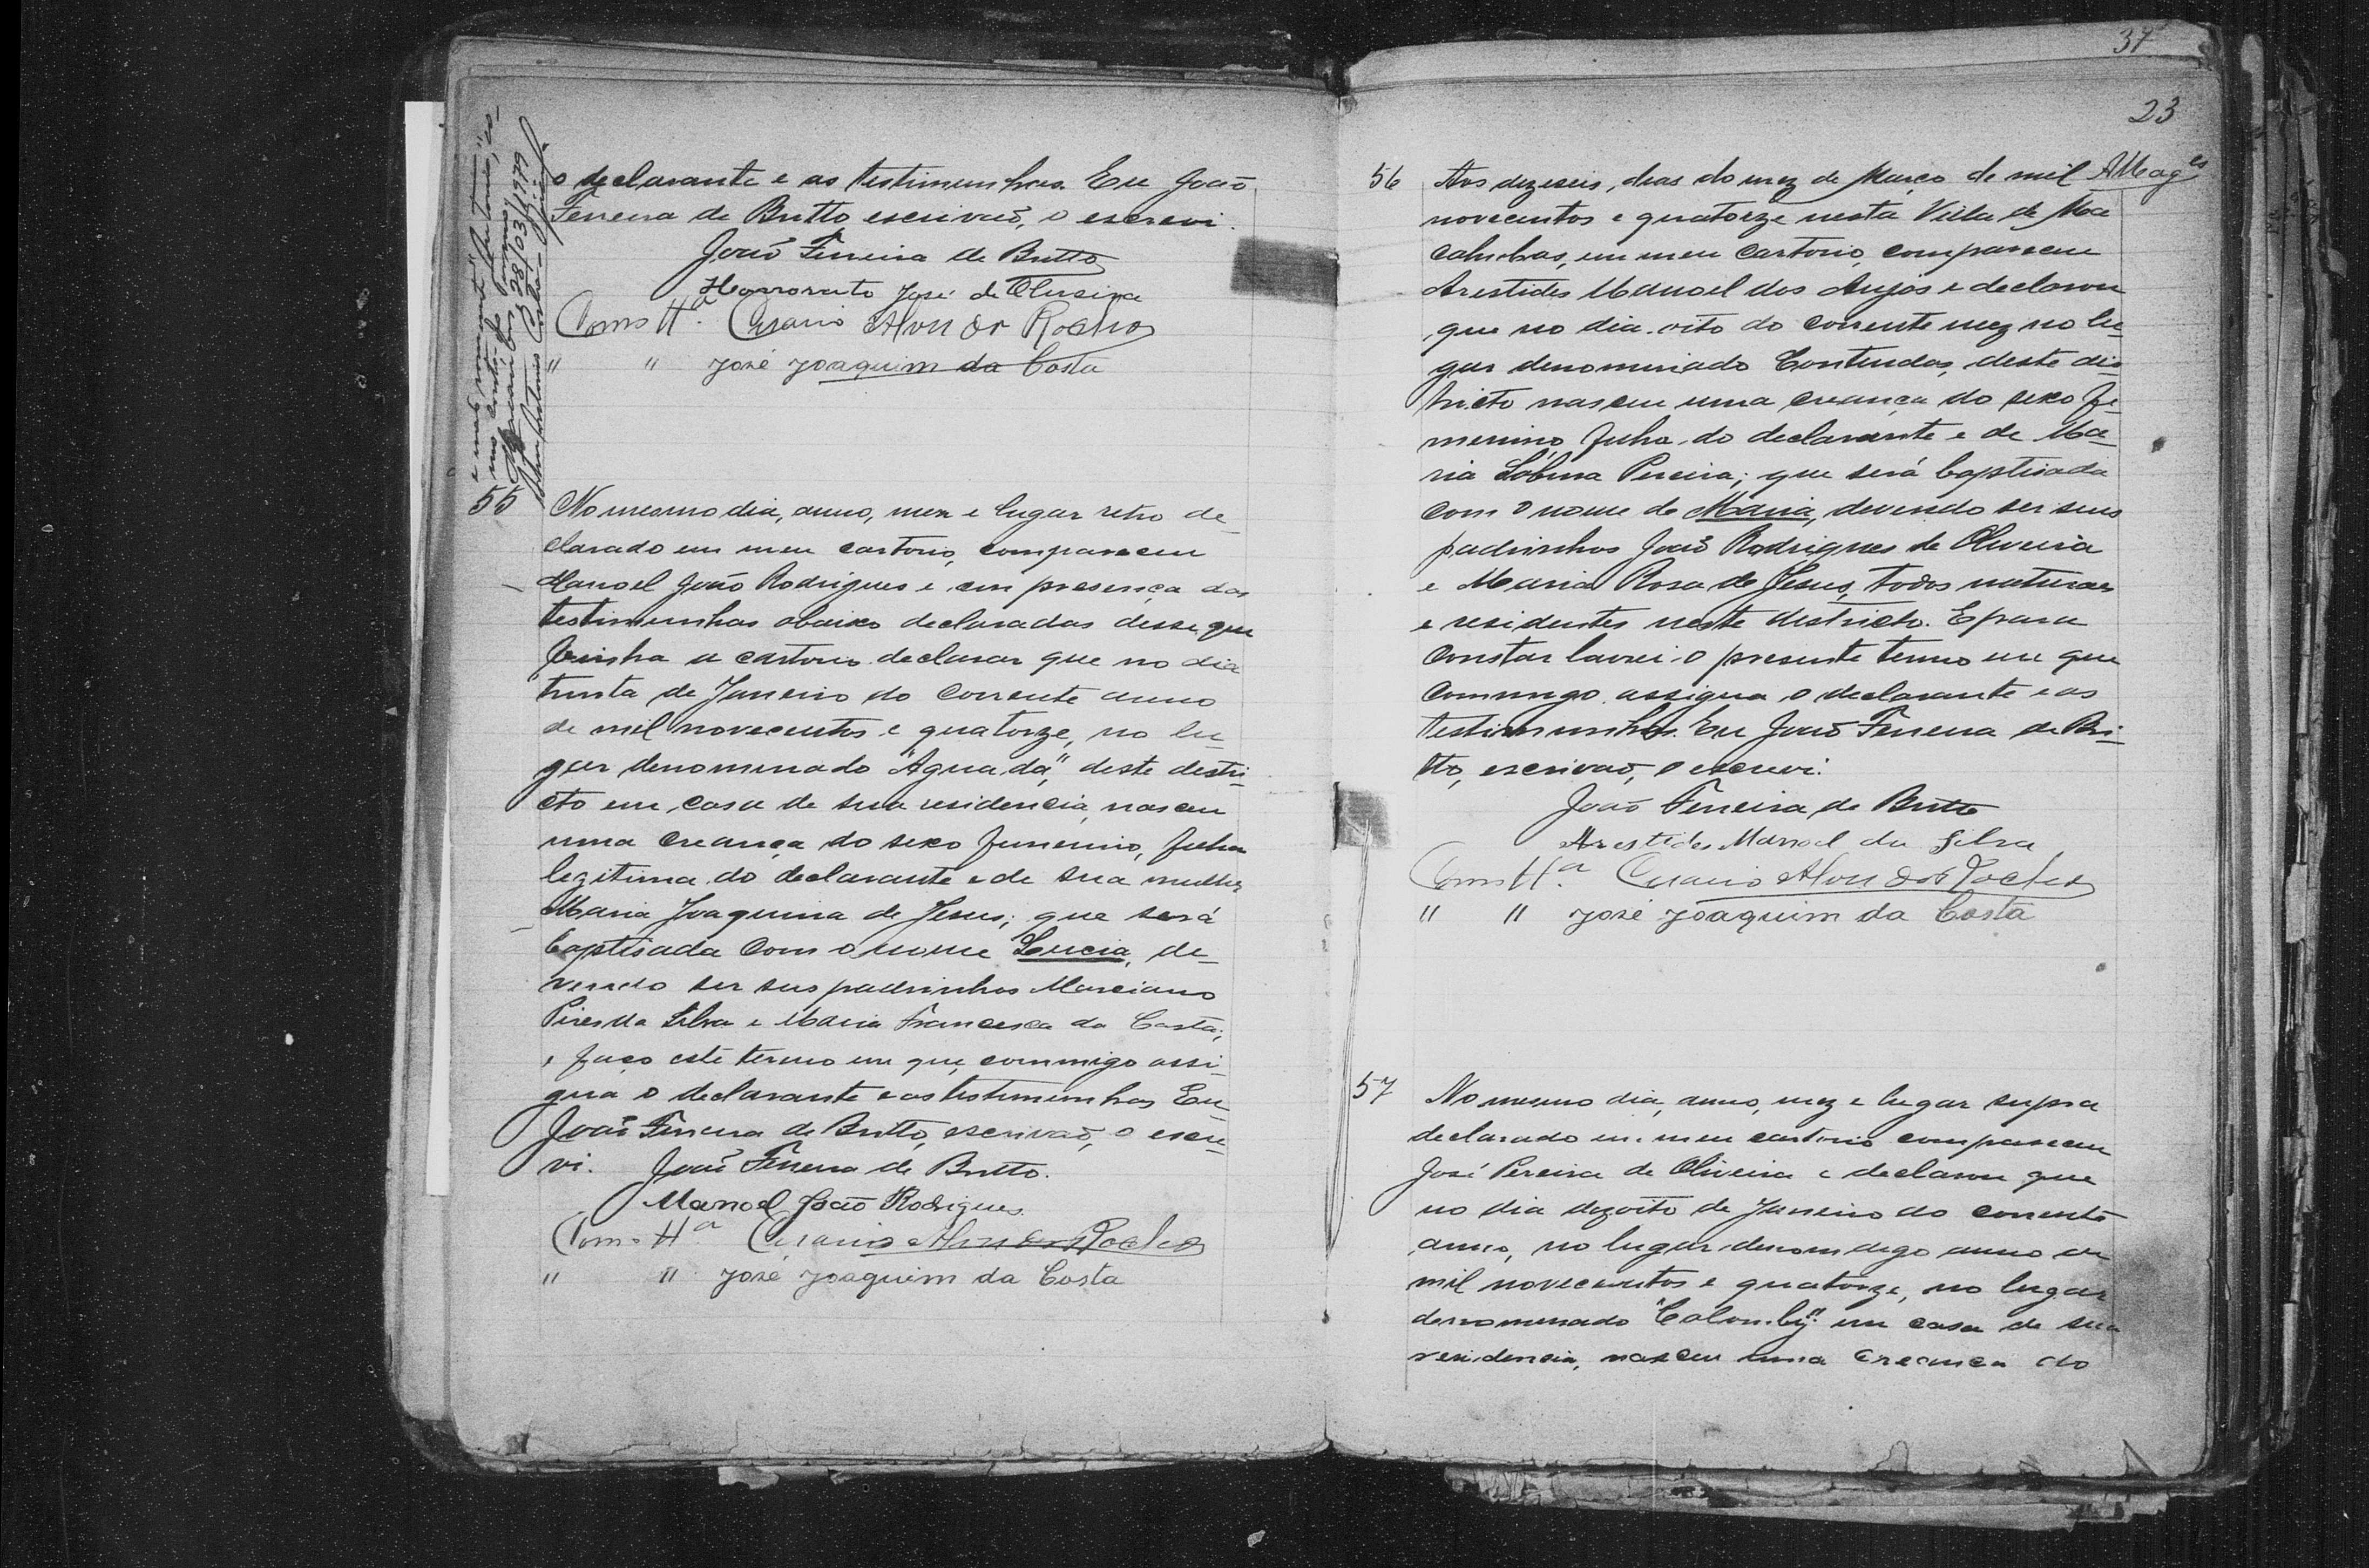 o declarante e as testimunhas. Eu João
Ferreira de Britto escrivão, o escrevi.
João Ferreira de Britto
Honorato José de Oliveira
Como ttª. Cesario Alves da Rocha
" " José Joaquim da Costa
28/03/1979
55
No mesmo dia, anno, mez e lugar retro de
clarado em meu cartorio, compareceu
Manoel João Rodrigues e em presença das
testimunhas abaixo declaradas disse que
vinha a cartorio declarar que no dia
trinta de Janeiro do corrente anno
de mil novecentos e quatorze, no lu-
gar denominado "Aguada," deste destri-
cto em casa de sua residencia, nasceu
uma creança do sexo femenino, filha
legitima do declarante e de sua mulher
Maria Joaquina de Jesus; que será
baptisada com o nome Lucia, de-
vendo ser seus padrinhos Marciano
Pires da Silva e Maria Francisca da Costa;
e faço este termo em que commigo assi-
gna o declarante e as testimunhas Eu
João Ferreira de Britto, escrivão, o escre-
vi. João Ferreira de Britto.
Manoel João Rodrigues
Como ttª Cesario Alves da Rocha
" " José Joaquim da Costa
37
23
56
Aos dezeseis, dias do mez de Março de mil
novecentos e quatorze nesta Villa de Ma
cahubas, em meu cartorio, compareceu
Arestides Manoel dos Anjos e declarou
que no dia oito do corrente mez no lu-
gar denominado Contendas, deste dis-
tricto nasceu uma creança do sexo fe-
menino, filha do declarante e de Ma-
ria Sabina Pereira; que será baptisada
com o nome de Maria, devendo ser seus
padrinhos João Rodrigues de Oliveira
e Maria Rosa de Jesus, todos naturaes
e residentes neste districto. E para
constar lavrei o presente termo em que
commigo assigna o declarante e as
testimunhas. Eu João Ferreira de Bri-
tto, escrivão, o escrevi.
João Ferreira de Britto
Arestides Manoel da Silva
Como ttª. Cesario Alves da Rocha
" " José Joaquim da Costa
57
No mesmo dia, anno, mez e lugar supra
declarado em meu cartorio compareceu
José Pereira de Oliveira e declarou que
no dia dezoito de Janeiro do corrente
anno, no lugar denom digo anno de
mil novecentos e quatorze, no lugar
denominado "Calomby" em casa de sua
residencia, nasceu uma creança do